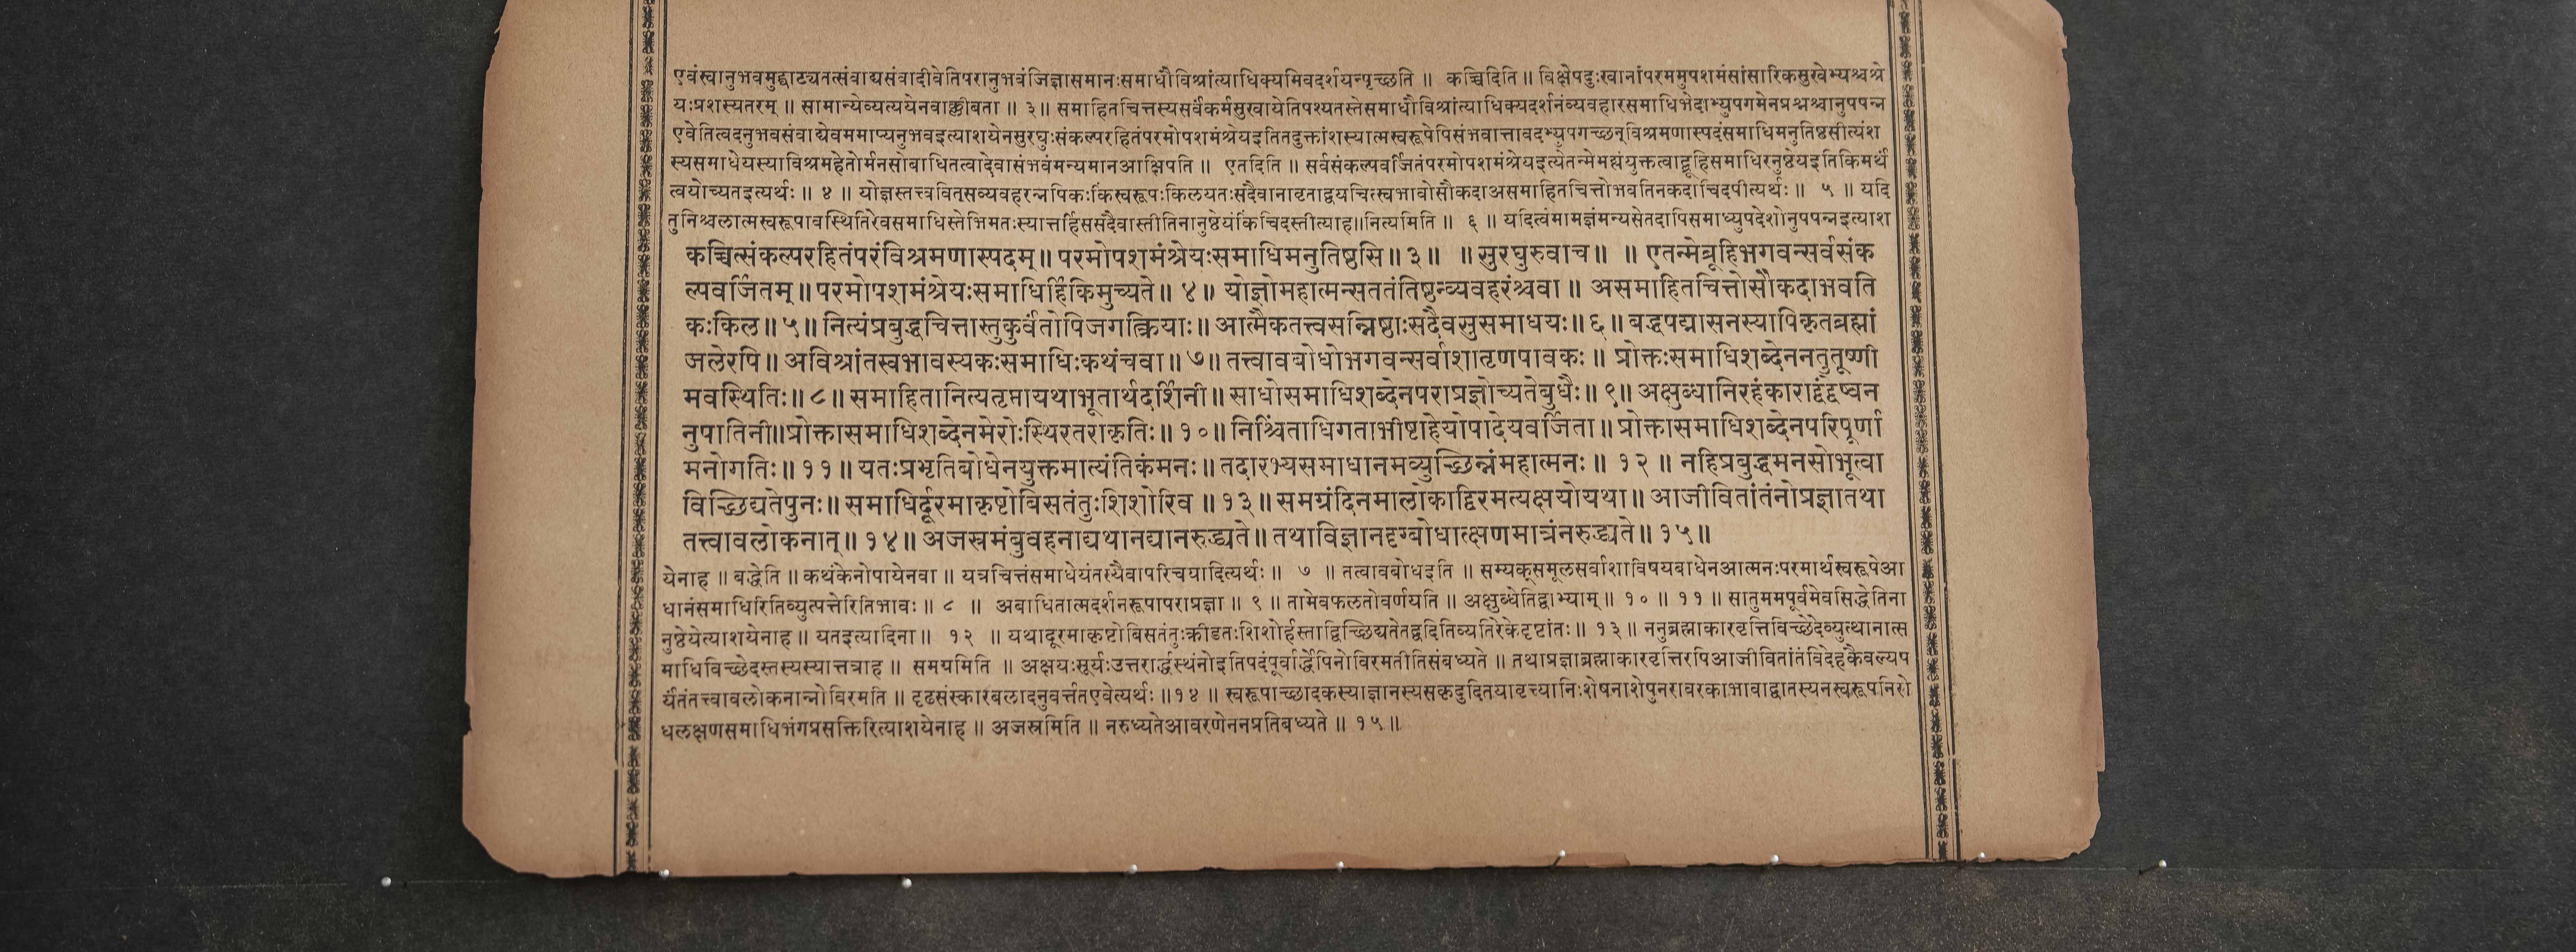 एवंस्वानुभवमुद्घाट्यतत्संवाद्यसंवादीवेतिपरानुभवंजिज्ञासमानःसमाधौविश्रांत्याधिक्यमिवदर्शयन्पृच्छति ॥ कच्चिदिति ॥ विक्षेपदुःखानांपरममुपशमंसांसारिकसुखेभ्यश्चश्रे
यःप्रशस्यतरम् ॥ सामान्येव्यत्ययेनवाक्लीबता ॥ ३ ॥ समाहितचित्तस्यसर्वंकर्मसुखायेतिपश्यतस्तेसमाधौविश्रांत्याधिक्यदर्शनंव्यवहारसमाधिभेदाभ्युपगमेनप्रश्नश्चानुपपन्न
एवेतित्वदनुभवसंवाद्येवममाप्यनुभवइत्याशयेनसुरघुःसंकल्परहितंपरमोपशमंश्रेयइतितदुक्तांशस्यात्मस्वरूपेपिसंभवात्तावदभ्युपगच्छन्विश्रमणास्पदंसमाधिमनुतिष्ठसीत्यंश
स्यसमाधेयस्याविश्रमहेतोर्मनसोबाधितत्वादेवासंभवंमन्यमानआक्षिपति ॥ एतदिति ॥ सर्वसंकल्पवर्जितंपरमोपशमंश्रेयइत्येतन्मेमह्यंयुक्तत्वाद्ब्रूहिसमाधिरनुष्ठेयइतिकिमर्थं
त्वयोच्यतइत्यर्थः ॥ ४ ॥ योज्ञस्तत्त्ववित्सव्यवहरन्नपिकःकिंस्वरूपःकिलयतःसदैवानावृताद्वयचित्स्वभावोसौकदाअसमाहितचित्तोभवतिनकदाचिदपीत्यर्थः ॥ ५ ॥ यदि
तुनिश्चलात्मस्वरूपावस्थितिरेवसमाधिस्तेभिमतःस्यात्तर्हिससदैवास्तीतिनानुष्ठेयंकिंचिदस्तीत्याह॥नित्यमिति ॥ ६ ॥ यदित्वंमामज्ञंमन्यसेतदापिसमाध्युपदेशोनुपपन्नइत्याश
कच्चित्संकल्परहितंपरंविश्रमणास्पदम् ॥ परमोपशमंश्रेयःसमाधिमनुतिष्ठसि ॥ ३ ॥ ॥ सुरघुरुवाच ॥ ॥ एतन्मेब्रूहिभगवन्सर्वसंक
ल्पवर्जितम् ॥ परमोपशमंश्रेयःसमाधिर्हिकिमुच्यते ॥ ४ ॥ योज्ञोमहात्मन्सततंतिष्ठन्व्यवहरंश्चवा ॥ असमाहितचित्तोसौकदाभवति
कःकिल ॥ ५ ॥ नित्यंप्रबुद्धचित्तास्तुकुर्वंतोपिजगत्क्रियाः ॥ आत्मैकतत्त्वसन्निष्ठाःसदैवसुसमाधयः ॥ ६ ॥ बद्धपद्मासनस्यापिकृतब्रह्मां
जलेरपि ॥ अविश्रांतस्वभावस्यकःसमाधिःकथंचवा ॥ ७ ॥ तत्त्वावबोधोभगवन्सर्वाशातृणपावकः ॥ प्रोक्तःसमाधिशब्देननतुतूष्णी
मवस्थितिः ॥ ८ ॥ समाहितानित्यतृप्तायथाभूतार्थदर्शिनी ॥ साधोसमाधिशब्देनपराप्रज्ञोच्यतेबुधैः ॥ ९ ॥ अक्षुब्धानिरहंकाराद्वंद्वेष्वन
नुपातिनी॥प्रोक्तासमाधिशब्देनमेरोःस्थिरतराकृतिः ॥ १० ॥ निश्चिंताधिगताभीष्टाहेयोपादेयवर्जिता ॥ प्रोक्तासमाधिशब्देनपरिपूर्णा
मनोगतिः ॥ ११ ॥ यतःप्रभृतिबोधेनयुक्तमात्यंतिकंमनः ॥ तदारभ्यसमाधानमव्युच्छिन्नंमहात्मनः ॥ १२ ॥ नहिप्रबुद्धमनसोभूत्वा
विच्छिद्यतेपुनः ॥ समाधिर्दूरमाकृष्टोबिसतंतुःशिशोरिव ॥ १३ ॥ समग्रंदिनमालोकाद्विरमत्यक्षयोयथा ॥ आजीवितांतंनोप्रज्ञातथा
तत्त्वावलोकनात् ॥ १४ ॥ अजस्रमंबुवहनाद्यथानद्यानरुद्ध्यते ॥ तथाविज्ञानदृग्बोधात्क्षणमात्रंनरुद्ध्यते ॥ १५ ॥
येनाह ॥ बद्धेति ॥ कथंकेनोपायेनवा ॥ यत्रचित्तंसमाधेयंतस्यैवापरिचयादित्यर्थः ॥ ७ ॥ तत्वावबोधइति ॥ सम्यक्समूलसर्वाशाविषयबाधेनआत्मनःपरमार्थस्वरूपेआ
धानंसमाधिरितिव्युत्पत्तेरितिभावः ॥ ८ ॥ अबाधितात्मदर्शनरूपापराप्रज्ञा ॥ ९ ॥ तामेवफलतोवर्णयति ॥ अक्षुब्धेतिद्वाभ्याम् ॥ १० ॥ ११ ॥ सातुममपूर्वमेवसिद्धेतिना
नुष्ठेयेत्याशयेनाह ॥ यतइत्यादिना ॥ १२ ॥ यथादूरमाकृष्टोबिसतंतुःक्रीडतःशिशोर्हस्ताद्विच्छिद्यतेतद्वदितिव्यतिरेकेदृष्टांतः ॥ १३ ॥ ननुब्रह्माकारवृत्तिविच्छेदेव्युत्थानात्स
माधिविच्छेदस्तस्यस्यात्तत्राह ॥ समग्रमिति ॥ अक्षयःसूर्यःउत्तरार्द्धस्थंनोइतिपदंपूर्वार्द्धेपिनोविरमतीतिसंबध्यते ॥ तथाप्रज्ञाब्रह्माकारवृत्तिरपिआजीवितांतंविदेहकैवल्यप
र्यंतंतत्त्वावलोकनान्नोविरमति ॥ दृढसंस्कारबलादनुवर्त्ततएवेत्यर्थः ॥१४ ॥ स्वरूपाच्छादकस्याज्ञानस्यसकृदुदितयावृत्त्यानिःशेषनाशेपुनरावरकाभावाद्वातस्यनस्वरूपनिरो
धलक्षणसमाधिभंगप्रसक्तिरित्याशयेनाह ॥ अजस्रमिति ॥ नरुध्यतेआवरणेननप्रतिबध्यते ॥ १५ ॥